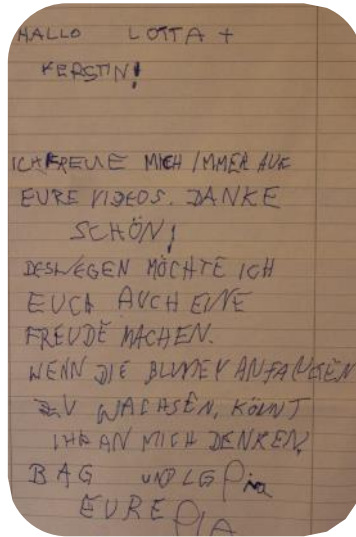 HALLO LOTTA +
KERSTIN!
ICH FREUE MICH IMMER AUF
EURE VIDEOS. DANKE
SCHÖN!
DESWEGEN MÖCHTE ICH
EUCH AUCH EINE
FREUDE MACHEN.
WENN DIE BLUMEN ANFANGEN
ZU WACHSEN, KÖNNT
IHR AN MICH DENKEN,
BAG UND LG Pia
EURE PIA